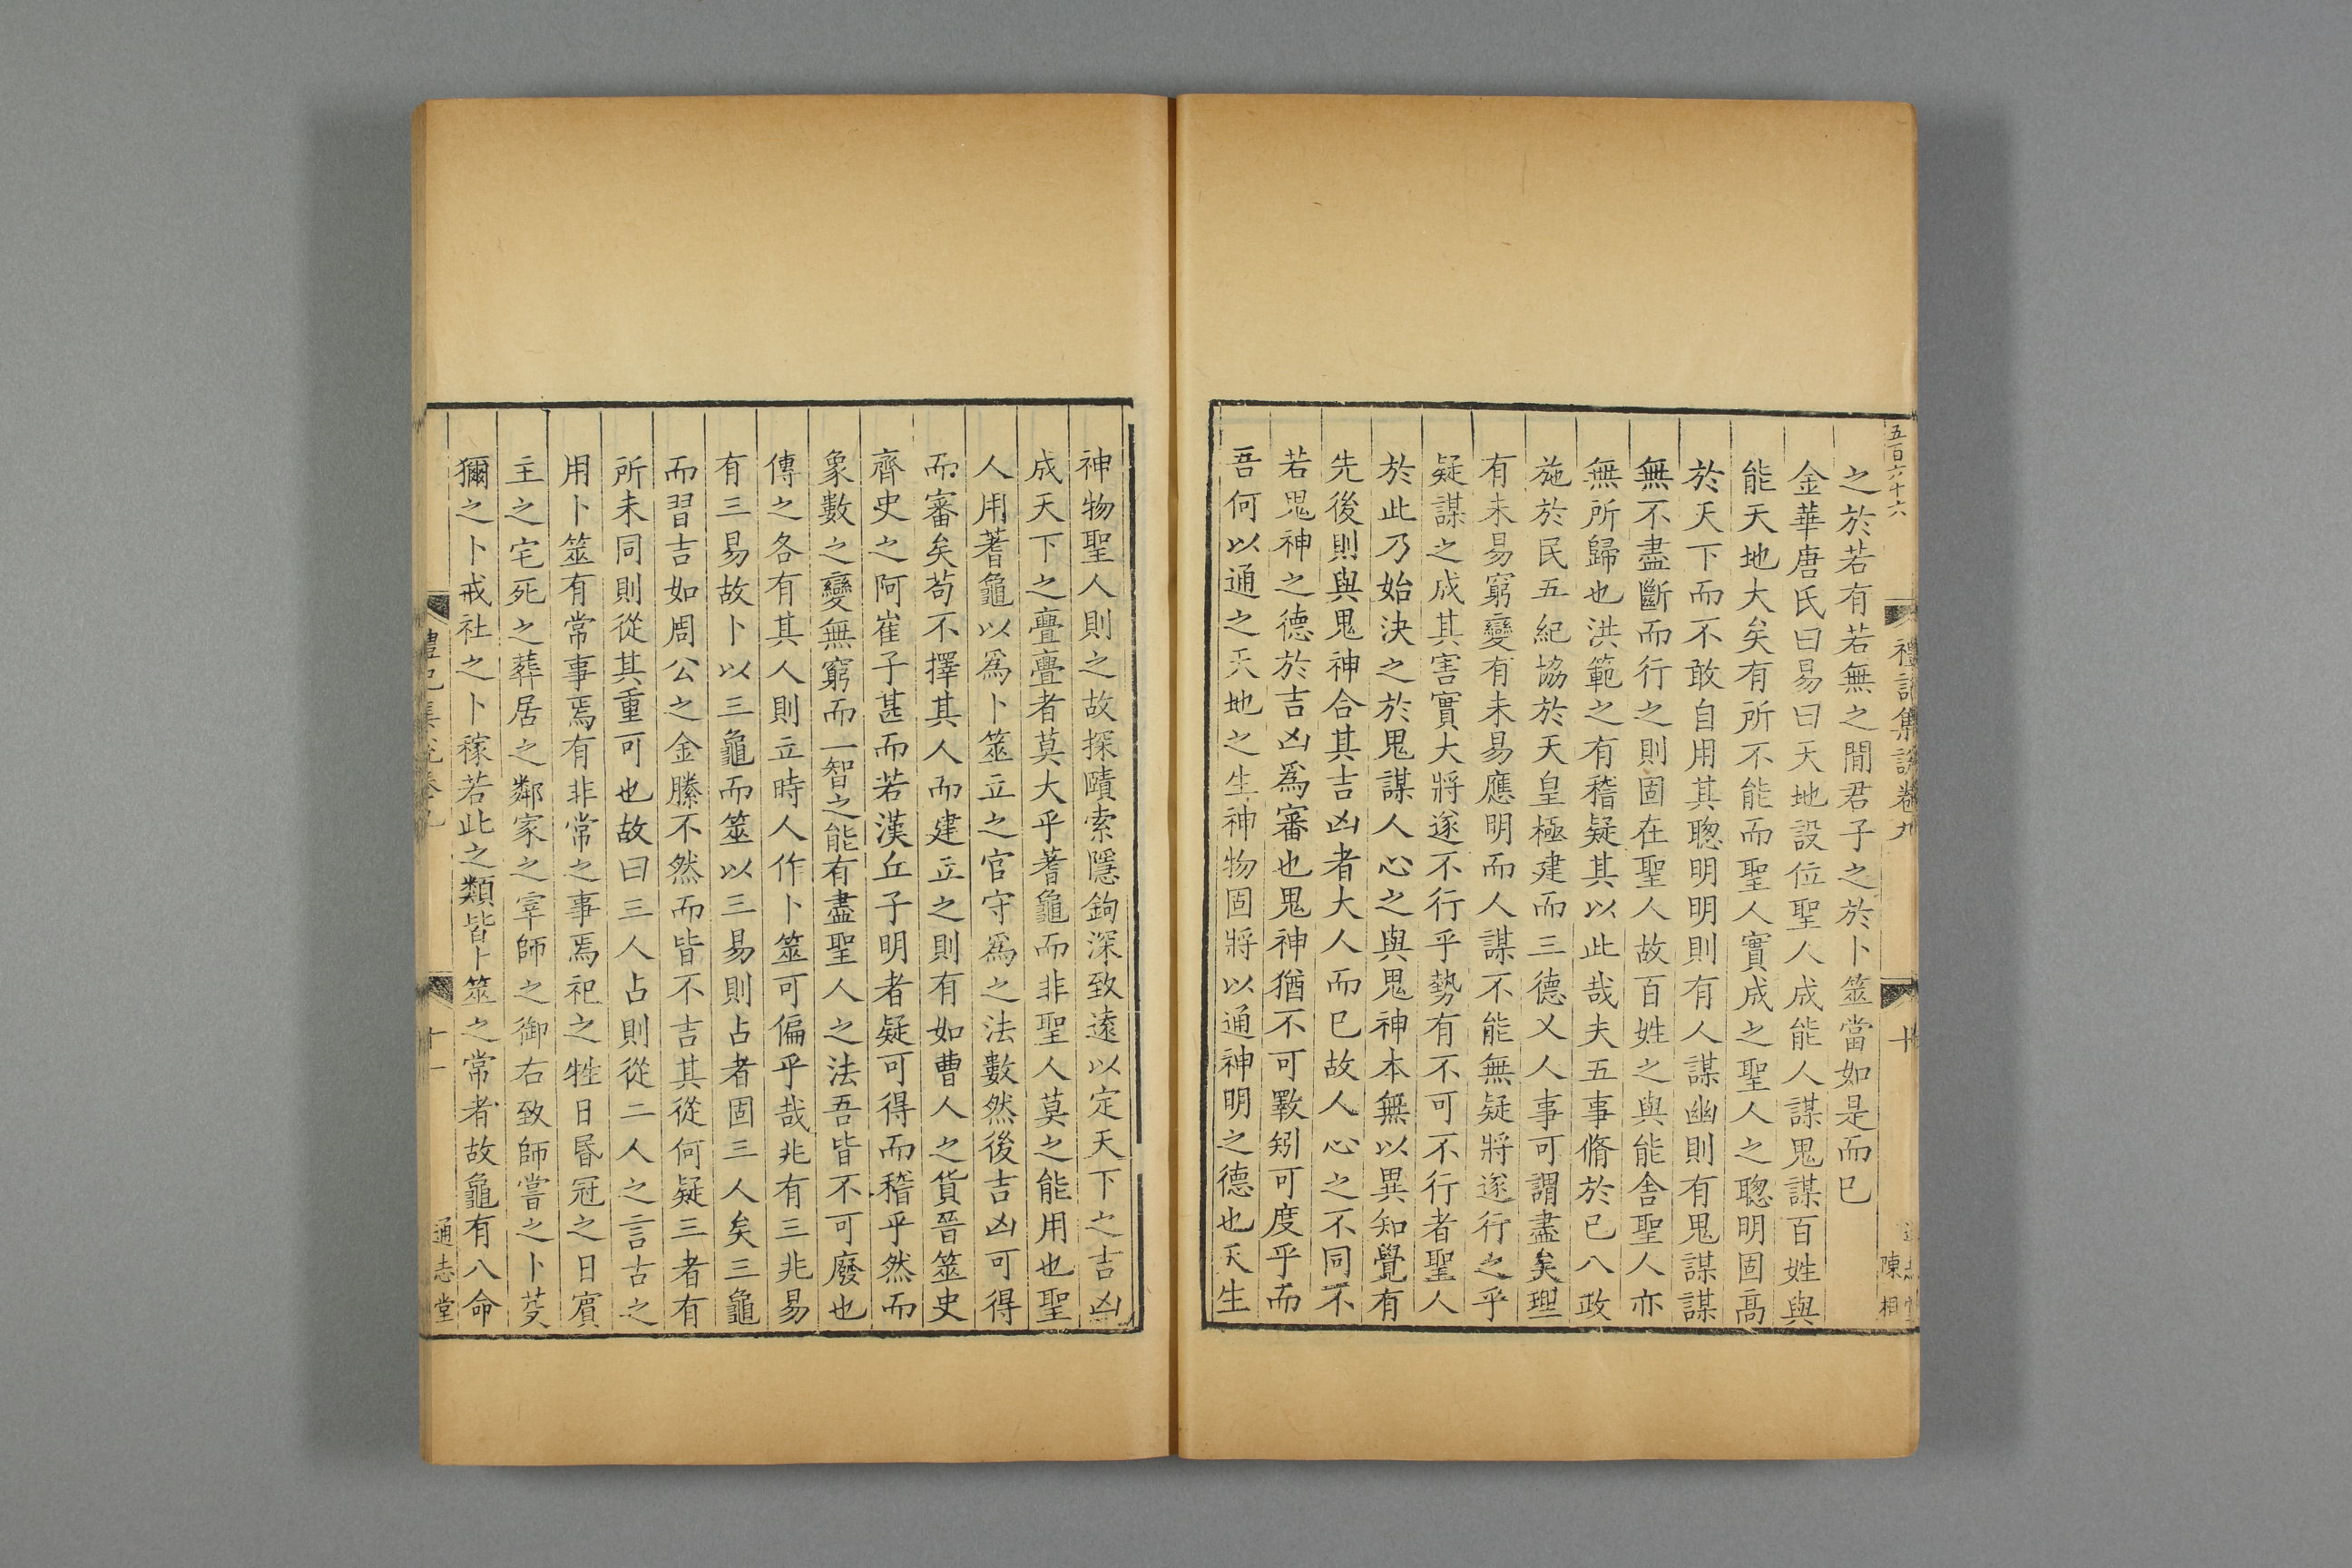 五百六十六
禮記集說卷九
十
陳相
之於若有若無之間君子之於卜筮當如是而已
金華唐氏曰易曰天地設位聖人成能人謀鬼謀百姓與
能天地大矣有所不能而聖人實成之聖人之聰明固高
於天下而不敢自用其聰明明則有人謀幽則有鬼謀謀
無不盡斷而行之則固在聖人故百姓之與能舍聖人亦
無所歸也洪範之有稽疑其以此哉夫五事脩於已八政
施於民五紀協於天皇極建而三德乂人事可謂盡矣理
有未易窮變有未易應明而人謀不能無疑將遂行之乎
疑謀之成其害實大將遂不行乎勢有不可不行者聖人
於此乃始決之於鬼謀人心之與鬼神本無以異知覺有
先後則與鬼神合其吉凶者大人而已故人心之不同不
若鬼神之德於吉凶爲審也鬼神猶不可斁矧可度乎而
吾何以通之天地之生神物固將以通神明之德也天生
神物聖人則之故探賾索隱鉤深致遠以定天下之吉凶
成天下之亹亹者莫大乎蓍龜而非聖人莫之能用也聖
人用蓍龜以爲卜筮立之官守爲之法數然後吉凶可得
而審矣苟不擇其人而建立之則有如曹人之貨晉筮史
齊史之阿崔子甚而若漢丘子明者疑可得而稽乎然而
象數之變無窮而一智之能有盡聖人之法吾皆不可廢也
傳之各有其人則立時人作卜筮可偏乎哉兆有三兆易
有三易故卜以三龜而筮以三易則占者固三人矣三龜
而習吉如周公之金縢不然而皆不吉其從何疑三者有
所未同則從其重可也故曰三人占則從二人之言古之
用卜筮有常事焉有非常之事焉祀之牲日昏冠之日賓
主之宅死之葬居之鄰家之宰師之御右致師嘗之卜芟
獮之卜戒社之卜稼若此之類皆卜筮之常者故龜有八命
十一
通志堂